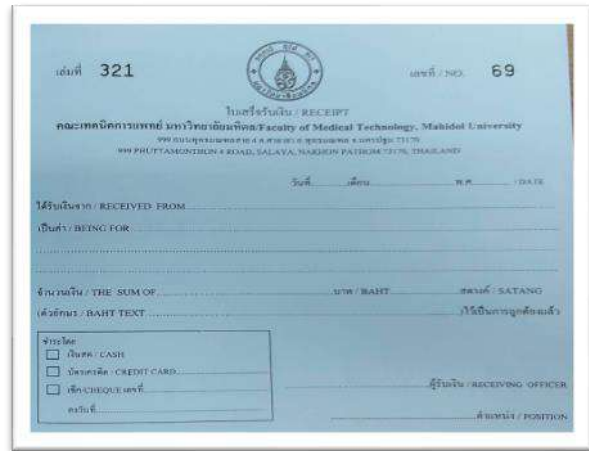 เล่มที่ 321
เลขที่ / NO. 69
ใบเสร็จรับเงิน / RECEIPT
คณะเทคนิคการแพทย์ มหาวิทยาลัยมหิดล/Faculty of Medical Technology, Mahidol University
999 ถนนพุทธมณฑลสาย 4 ต.ศาลายา อ.พุทธมณฑล จ.นครปฐม 73170
999 PHUTTAMONTHON 4 ROAD, SALAYA, NAKHON PATHOM 73170, THAILAND
วันที่ เดือน พ.ศ. / DATE
ได้รับเงินจาก / RECEIVED FROM
เป็นค่า / BEING FOR
จำนวนเงิน / THE SUM OF บาท / BAHT สตางค์ / SATANG
(ตัวอักษร / BAHT TEXT )ไว้เป็นการถูกต้องแล้ว
ชำระโดย
เงินสด / CASH
บัตรเครดิต / CREDIT CARD
เช็ค/CHEQUE เลขที่
ลงวันที่
ผู้รับเงิน / RECEIVING OFFICER
ตำแหน่ง / POSITION